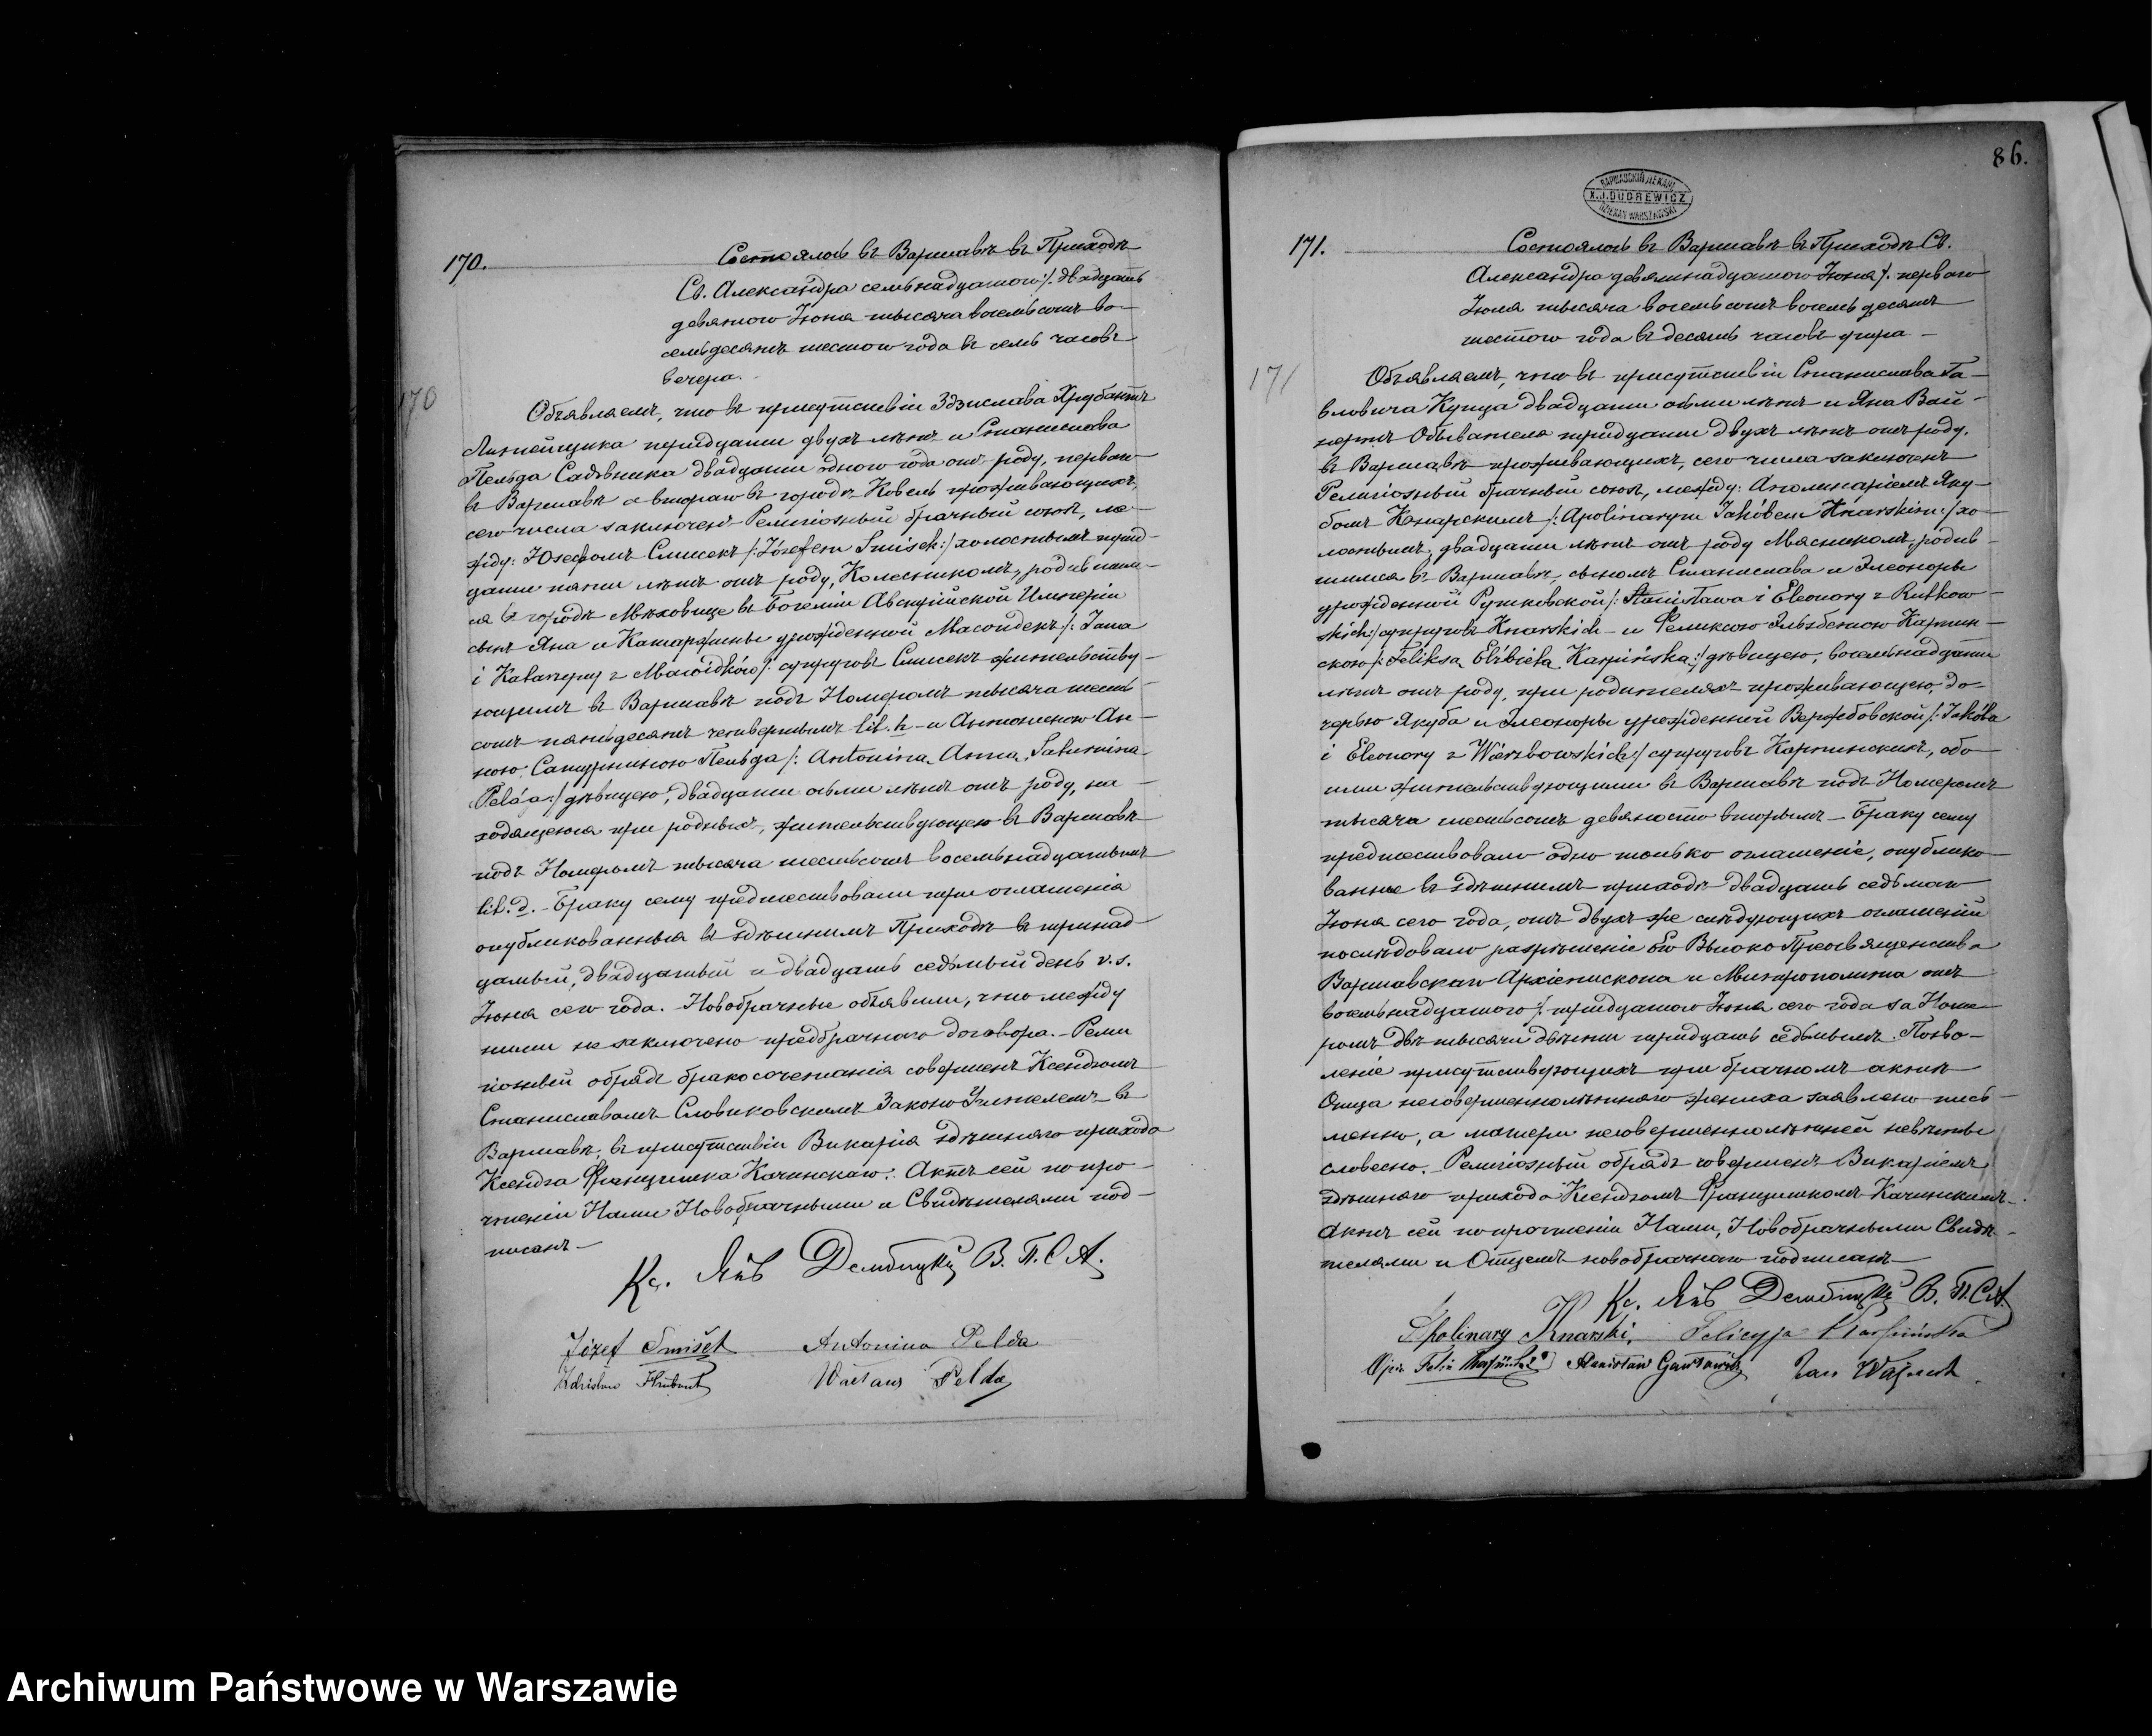 170.
Состоялось въ Варшавѣ въ Приходѣ
Св. Александра семьнадцатого /: двадцать
девятого Іюня тысяча восемьсотъ во-
семьдесятъ шестого года въ семь часовъ
вечера.
170
Объявляемъ, что въ присутствіи Здзислава Хрубантъ
Литейщика тридцати двухъ лѣтъ и Станислава
Пельда Садовника двадцати одного года отъ роду, перваго
въ Варшавѣ а втораго въ городѣ Ковель проживающихъ,
сего числа заключенъ Религіозный брачный союзъ, ме-
жду: Юзефомъ Смисекъ /: Józefem Smisek :/ холостымъ трид-
цати пяти лѣтъ отъ роду, Колесникомъ, родившим-
ся въ городѣ въ Богеміи Австрійской Имперіи
сынъ Яна и Катаржины урожденной /: Jana
i Katarzyny z :/ супруговъ Смисекъ жительству-
ющимъ въ Варшавѣ подъ Номеромъ тысяча шесть-
сотъ пятьдесятъ четвертымъ lit. h - и Антониною Ан-
ною Сатурниною Пельда /: Antonina, Anna, Saturnina
Pelda :/ дѣвицею, двадцати осьми лѣтъ отъ роду, на-
ходящеюся при родныхъ, жительствующею въ Варшавѣ
подъ Номеромъ тысяча шестьсотъ восемьнадцатымъ
lit. d. - Браку сему предшествовали три оглашенія
опубликованныя въ здѣшнемъ Приходѣ въ тринад-
цатый, двадцатый и двадцать седьмый день v.s.
Іюня сего года. - Новобрачные объявили, что между
ними не заключено предбрачнаго договора. - Рели
гіозный обрядъ бракосочетанія совершенъ Ксендзомъ
Станиславомъ Словиковскимъ Законоучителемъ въ
Варшавѣ, въ присутствіи Викарія здѣшняго прихода
Ксендза Францишка Качинскаго. Актъ сей по про-
чтеніи Нами Новобрачными и Свидѣтелями под-
писанъ -
Кс. Янъ Дембицкій В. П. С. А.
Józef Smišek Antonina Pelda
Zdzisław Hrubant Wacław Pelda
86.
ВАРШАВСКІЙ ДЕКАНЪ
X. J. DUDREWICZ
DZIEKAN WARSZAWSKI
171.
Состоялось въ Варшавѣ въ Приходѣ Св.
Александра девятнадцатого Іюня /: перваго
Іюля тысяча восемьсотъ восемьдесятъ
шестого года въ десять часовъ утра -
171
Объявляемъ, что въ присутствіи Станислава Га-
вловича Купца двадцати осьми лѣтъ и Яна Вай-
нертъ Обывателя тридцати двухъ лѣтъ отъ роду,
въ Варшавѣ проживающихъ, сего числа заключенъ
Религіозный брачный союзъ, между: Аполинаріемъ Яку-
бомъ Кнарскимъ /: Apolinarym Jakóbem Knarskim :/ хо-
лостымъ, двадцати лѣтъ отъ роду Мясникомъ, родив-
шимся въ Варшавѣ, сыномъ Станислава и Элеоноры
урожденной Рутковской /: Stanisława i Eleonory z Rutkow-
skich :/ супруговъ Knarskich - и Феликсою Эльзбетою Карпин-
скою /: Feliksa Elżbieta Karpińska :/ дѣвицею, восемьнадцати
лѣтъ отъ роду, при родителяхъ проживающею, до-
черью Якуба и Элеоноры урожденной Вержбовской /: Jakóba
i Eleonory z Wierzbowskich :/ супруговъ Карпинскихъ, обо-
ими жительствующими въ Варшавѣ подъ Номеромъ
тысяча шестьсотъ девяносто вторымъ - Браку сему
предшествовало одно только оглашеніе, опублико-
ванное въ здѣшнемъ приходѣ двадцать седьмаго
Іюня сего года, отъ двухъ же слѣдующихъ оглашеній
послѣдовало разрѣшеніе Его Высоко Преосвященства
Варшавскаго Архіепископа и Митрополита отъ
восемьнадцатого /: тридцатого Іюня сего года за Номе-
ромъ двѣ тысячи двѣсти тридцать седьмымъ. Позво-
леніе присутствующихъ при брачномъ актѣ
Отца несовершеннолѣтняго жениха заявлено пись-
менно, а матери несовершеннолѣтней невѣсты
словесно. Религіозный обрядъ совершенъ Викаріемъ
здѣшняго прихода Ксендзомъ Францишкомъ Качинскимъ.
Актъ сей по прочтеніи Нами, Новобрачными Свидѣ-
телями и Отцемъ новобрачнаго подписанъ -
Кс. Янъ Дембицкій В. П. С. А.
Apolinary Knarski, Felicyja Karpińska
Stanisław Gawłowicz Jan Wajnert
Archiwum Państwowe w Warszawie